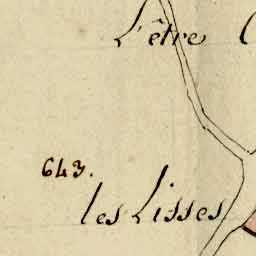 L'être
643.
les Lisses